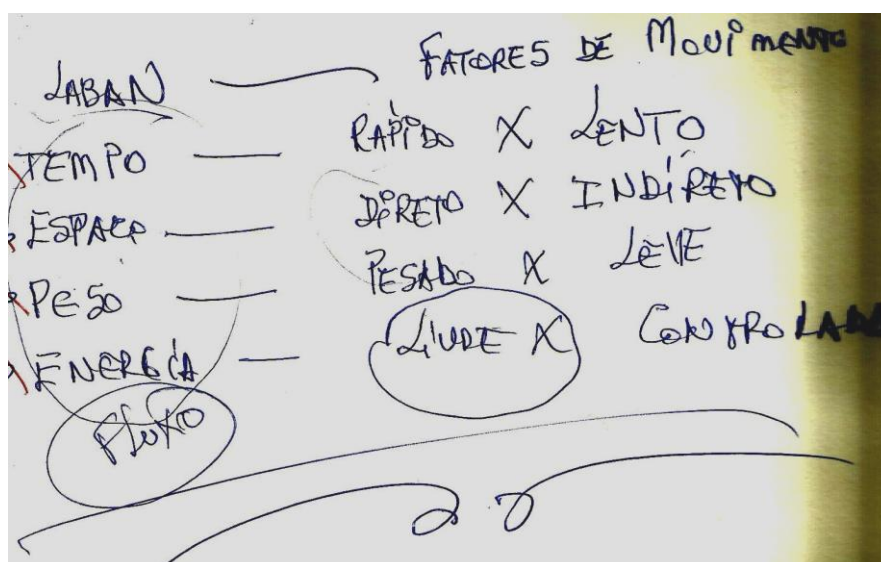 LABAN — FATORES DE MOViMENTO
TEMPO — RAPÍDO X LENTO
ESPAÇO — DiRETO X INDÍRETO
PESO — PESADO X LEVE
ENERGÍA — LIVDE X CONTROLADO
FLUXO